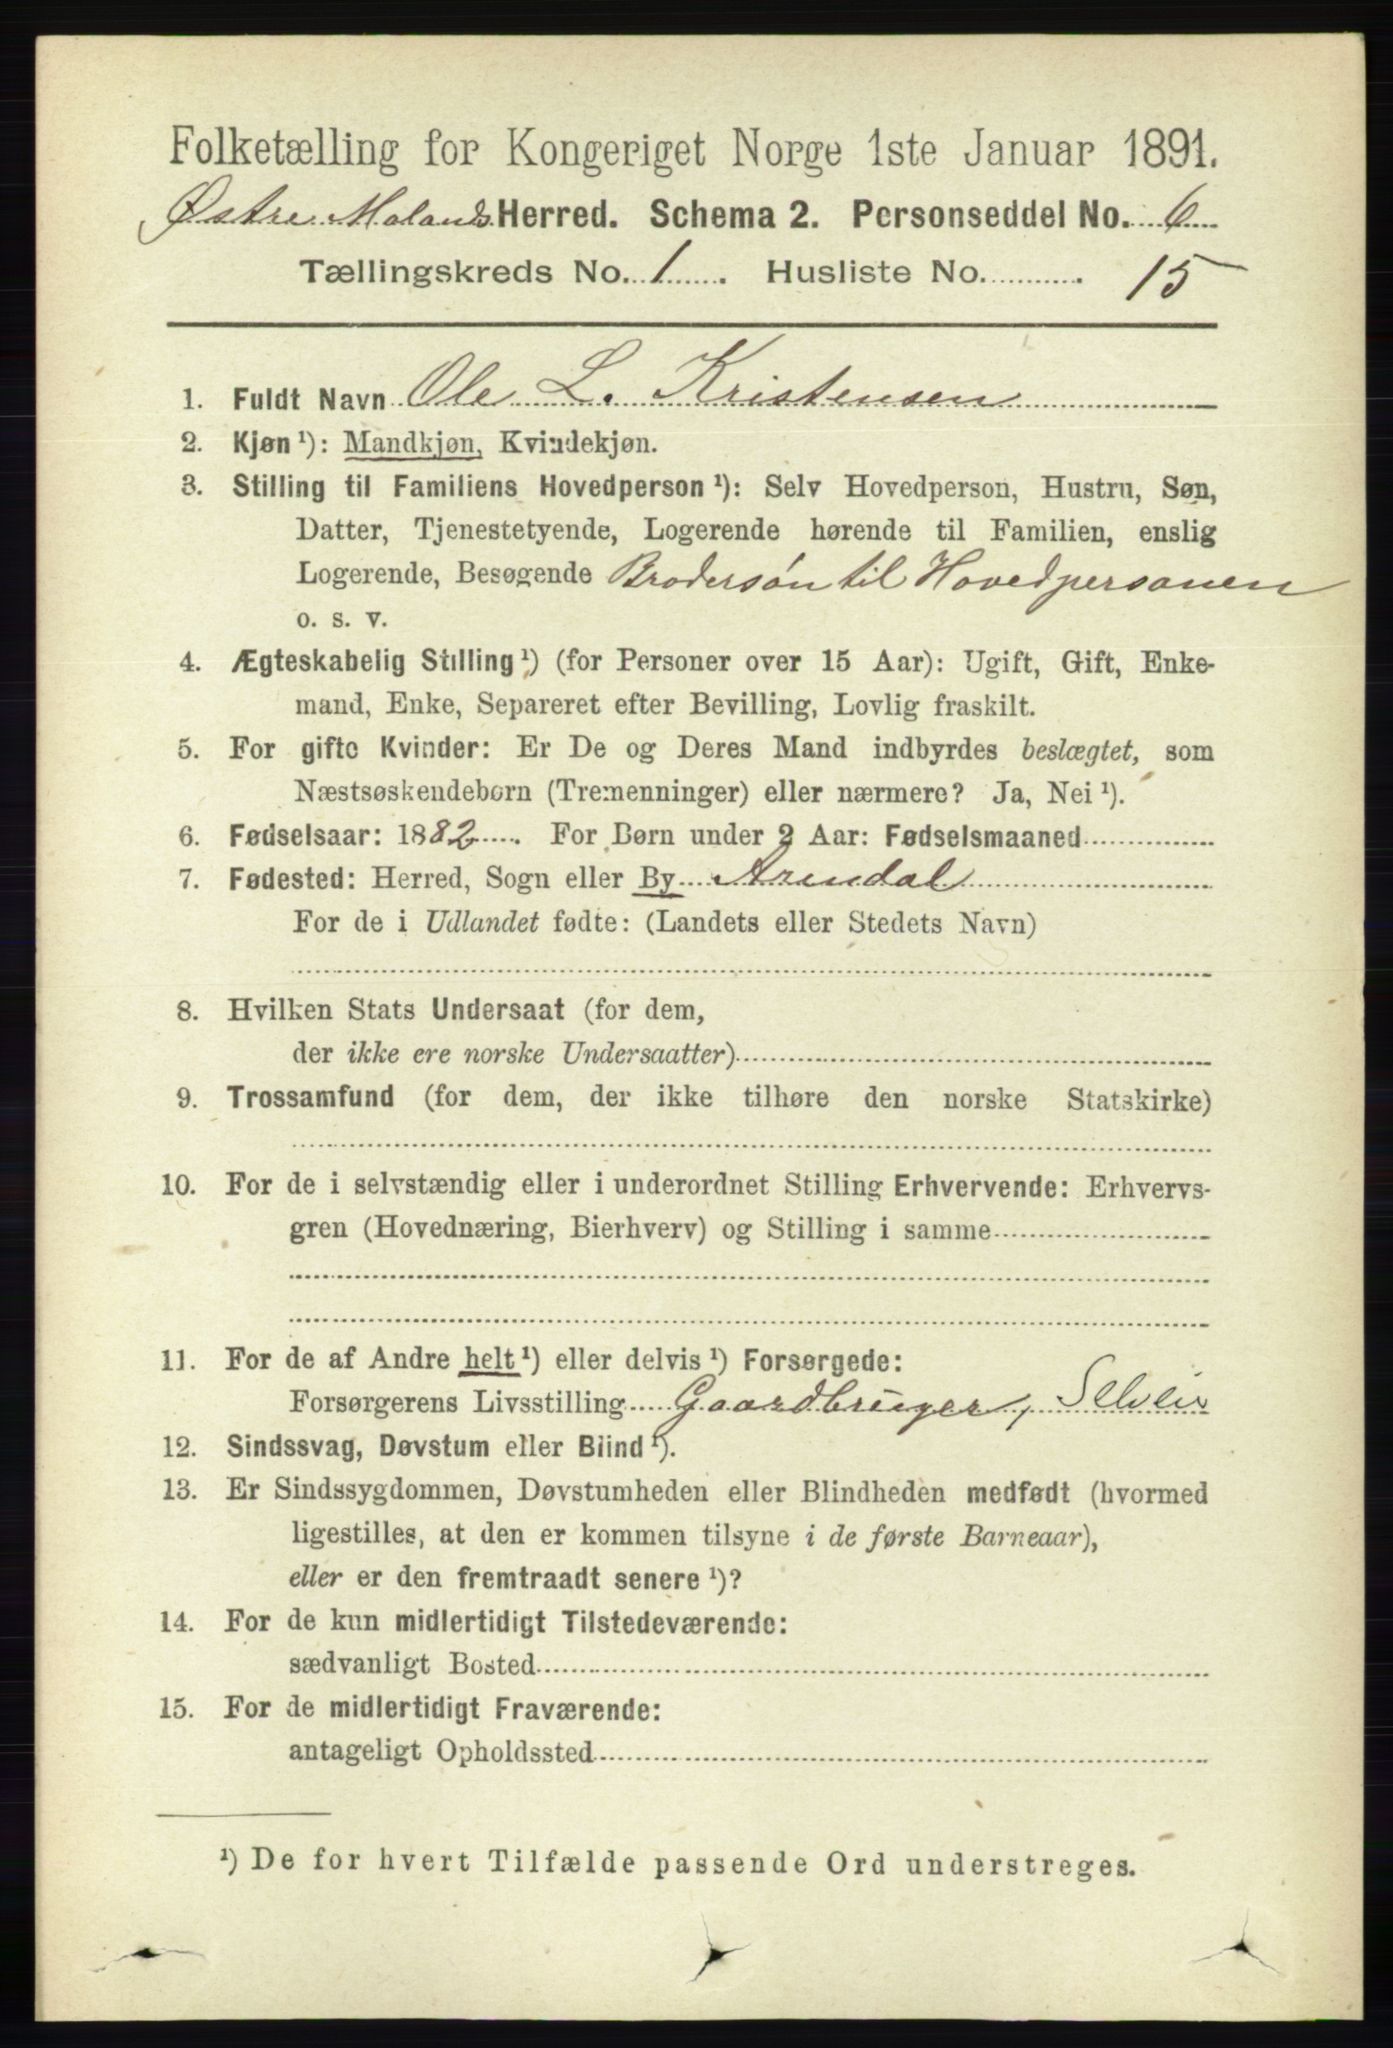 Folketælling for Kongeriget Norge 1ste Januar 1891.
Østre Molands Herred. Schema 2. Personseddel No. 6
Tællingskreds No. 1. Husliste No. 15
1. Fuldt Navn Ole L. Kristensen
2. Kjøn ¹): Mandkjøn, Kvindekjøn.
3. Stilling til Familiens Hovedperson ¹): Selv Hovedperson, Hustru, Søn,
Datter, Tjenestetyende, Logerende hørende til Familien, enslig
Logerende, Besøgende Brodersøn til Hovedpersonen
o. s. v.
4. Ægteskabelig Stilling ¹) (for Personer over 15 Aar): Ugift, Gift, Enke-
mand, Enke, Separeret efter Bevilling, Lovlig fraskilt.
5. For gifte Kvinder: Er De og Deres Mand indbyrdes beslægtet, som
Næstsøskendebørn (Tremenninger) eller nærmere? Ja, Nei ¹).
6. Fødselsaar: 1882. For Børn under 2 Aar: Fødselsmaaned
7. Fødested: Herred, Sogn eller By Arendal
For de i Udlandet fødte: (Landets eller Stedets Navn)
8. Hvilken Stats Undersaat (for dem,
der ikke ere norske Undersaatter)
9. Trossamfund (for dem, der ikke tilhøre den norske Statskirke)
10. For de i selvstændig eller i underordnet Stilling Erhvervende: Erhvervs-
gren (Hovednæring, Bierhverv) og Stilling i samme
11. For de af Andre helt ¹) eller delvis ¹) Forsørgede:
Forsørgerens Livsstilling Gaardbruger, Selveier
12. Sindssvag, Døvstum eller Blind ¹).
13. Er Sindssygdommen, Døvstumheden eller Blindheden medfødt (hvormed
ligestilles, at den er kommen tilsyne i de første Barneaar),
eller er den fremtraadt senere ¹)?
14. For de kun midlertidigt Tilstedeværende:
sædvanligt Bosted
15. For de midlertidigt Fraværende:
antageligt Opholdssted
¹) De for hvert Tilfælde passende Ord understreges.